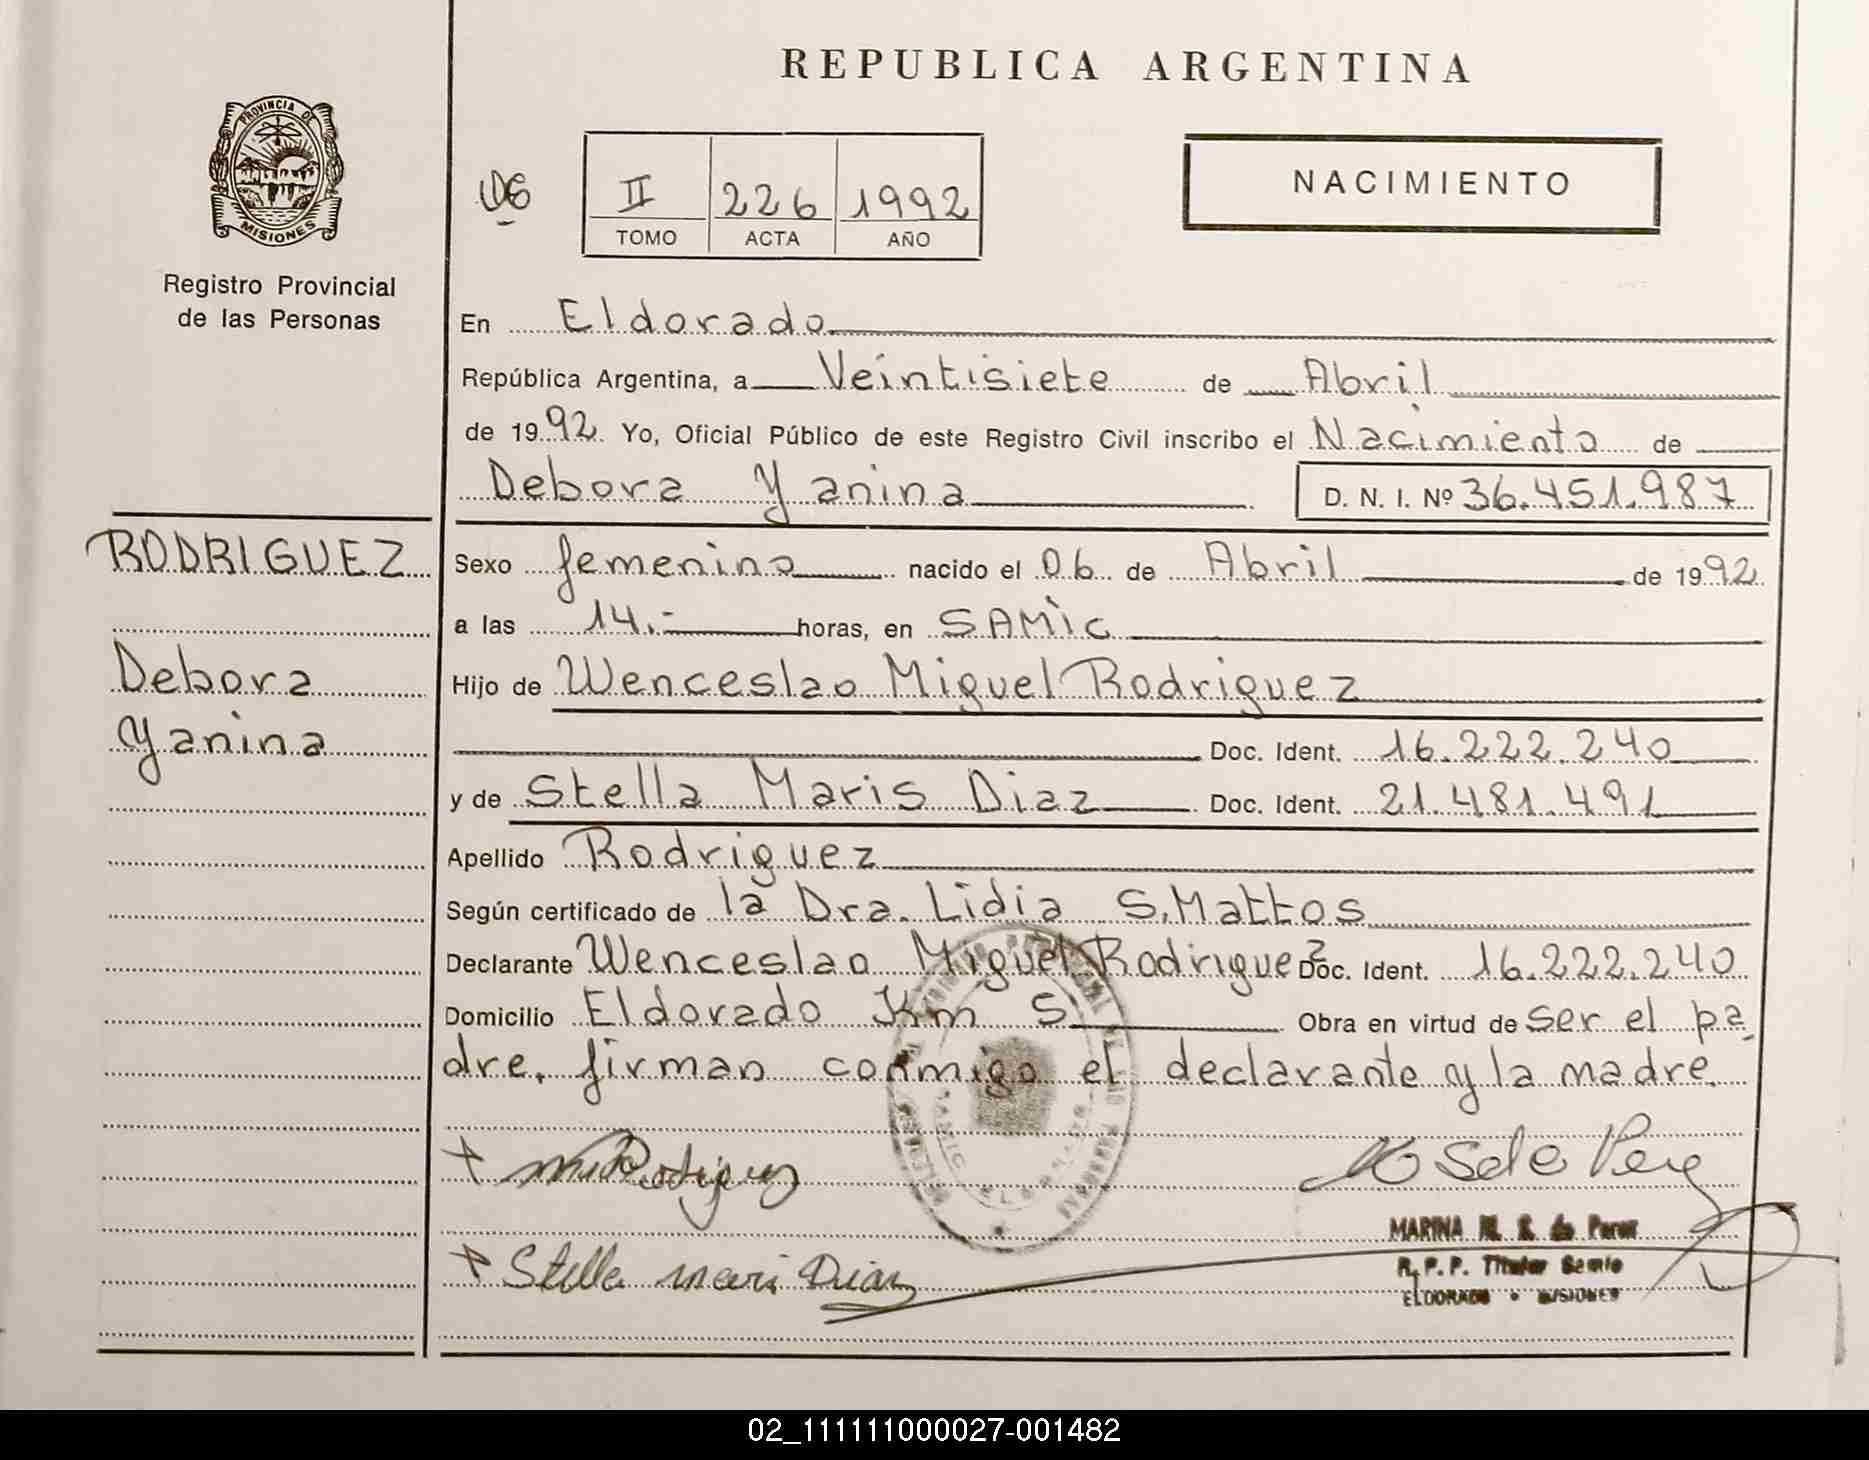 REPUBLICA ARGENTINA
PROVINCIA DE
MISIONES
Registro Provincial
de las Personas
II 226 1992
TOMO ACTA AÑO
NACIMIENTO
En Eldorado
República Argentina, a Veintisiete de Abril
de 1992. Yo, Oficial Público de este Registro Civil inscribo el Nacimiento de
Debora Yanina D. N. I. Nº 36.451.987
RODRIGUEZ
Debora
Yanina
Sexo femenino nacido el 06 de Abril de 1992
a las 14.- horas, en SAMIC
Hijo de Wenceslao Miguel Rodriguez
Doc. Ident. 16.222.240
y de Stella Maris Diaz Doc. Ident. 21.481.491
Apellido Rodriguez
Según certificado de la Dra. Lidia S. Mattos
Declarante Wenceslao Miguel Rodriguez Doc. Ident. 16.222.240
Domicilio Eldorado Km 5 Obra en virtud de ser el pa
dre, firman conmigo el declarante y la madre.
Rodriguez
Stella mari Diaz
MARINA M. S. de Perez
R. P. P. Titular Samic
ELDORADO • MISIONES
02_111111000027-001482